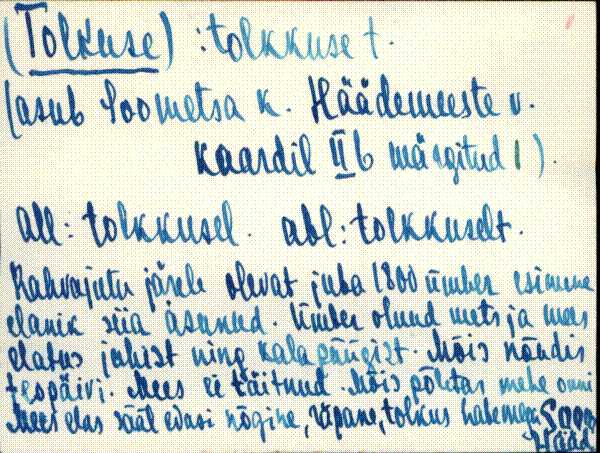 (Tolkuse) : tolkkuse t.
(asub Soometsa k. Häädemeeste v.
kaardil IIb märgitud 1).
all: tolkkusel. abl: tolkkuselt.
Rahvajutu järele olevat juba 1800 ümber esimene
elanik siia asunud. Ümber olnud mets ja mees
elatus jahist ning kalapüügist. Mõis nõudis
teopäivi. Mees ei täitnud. Mõis põletas mehe onni
Mees elas sääl edasi nõgine, räpane, tolkus habemega Soom
Hääd